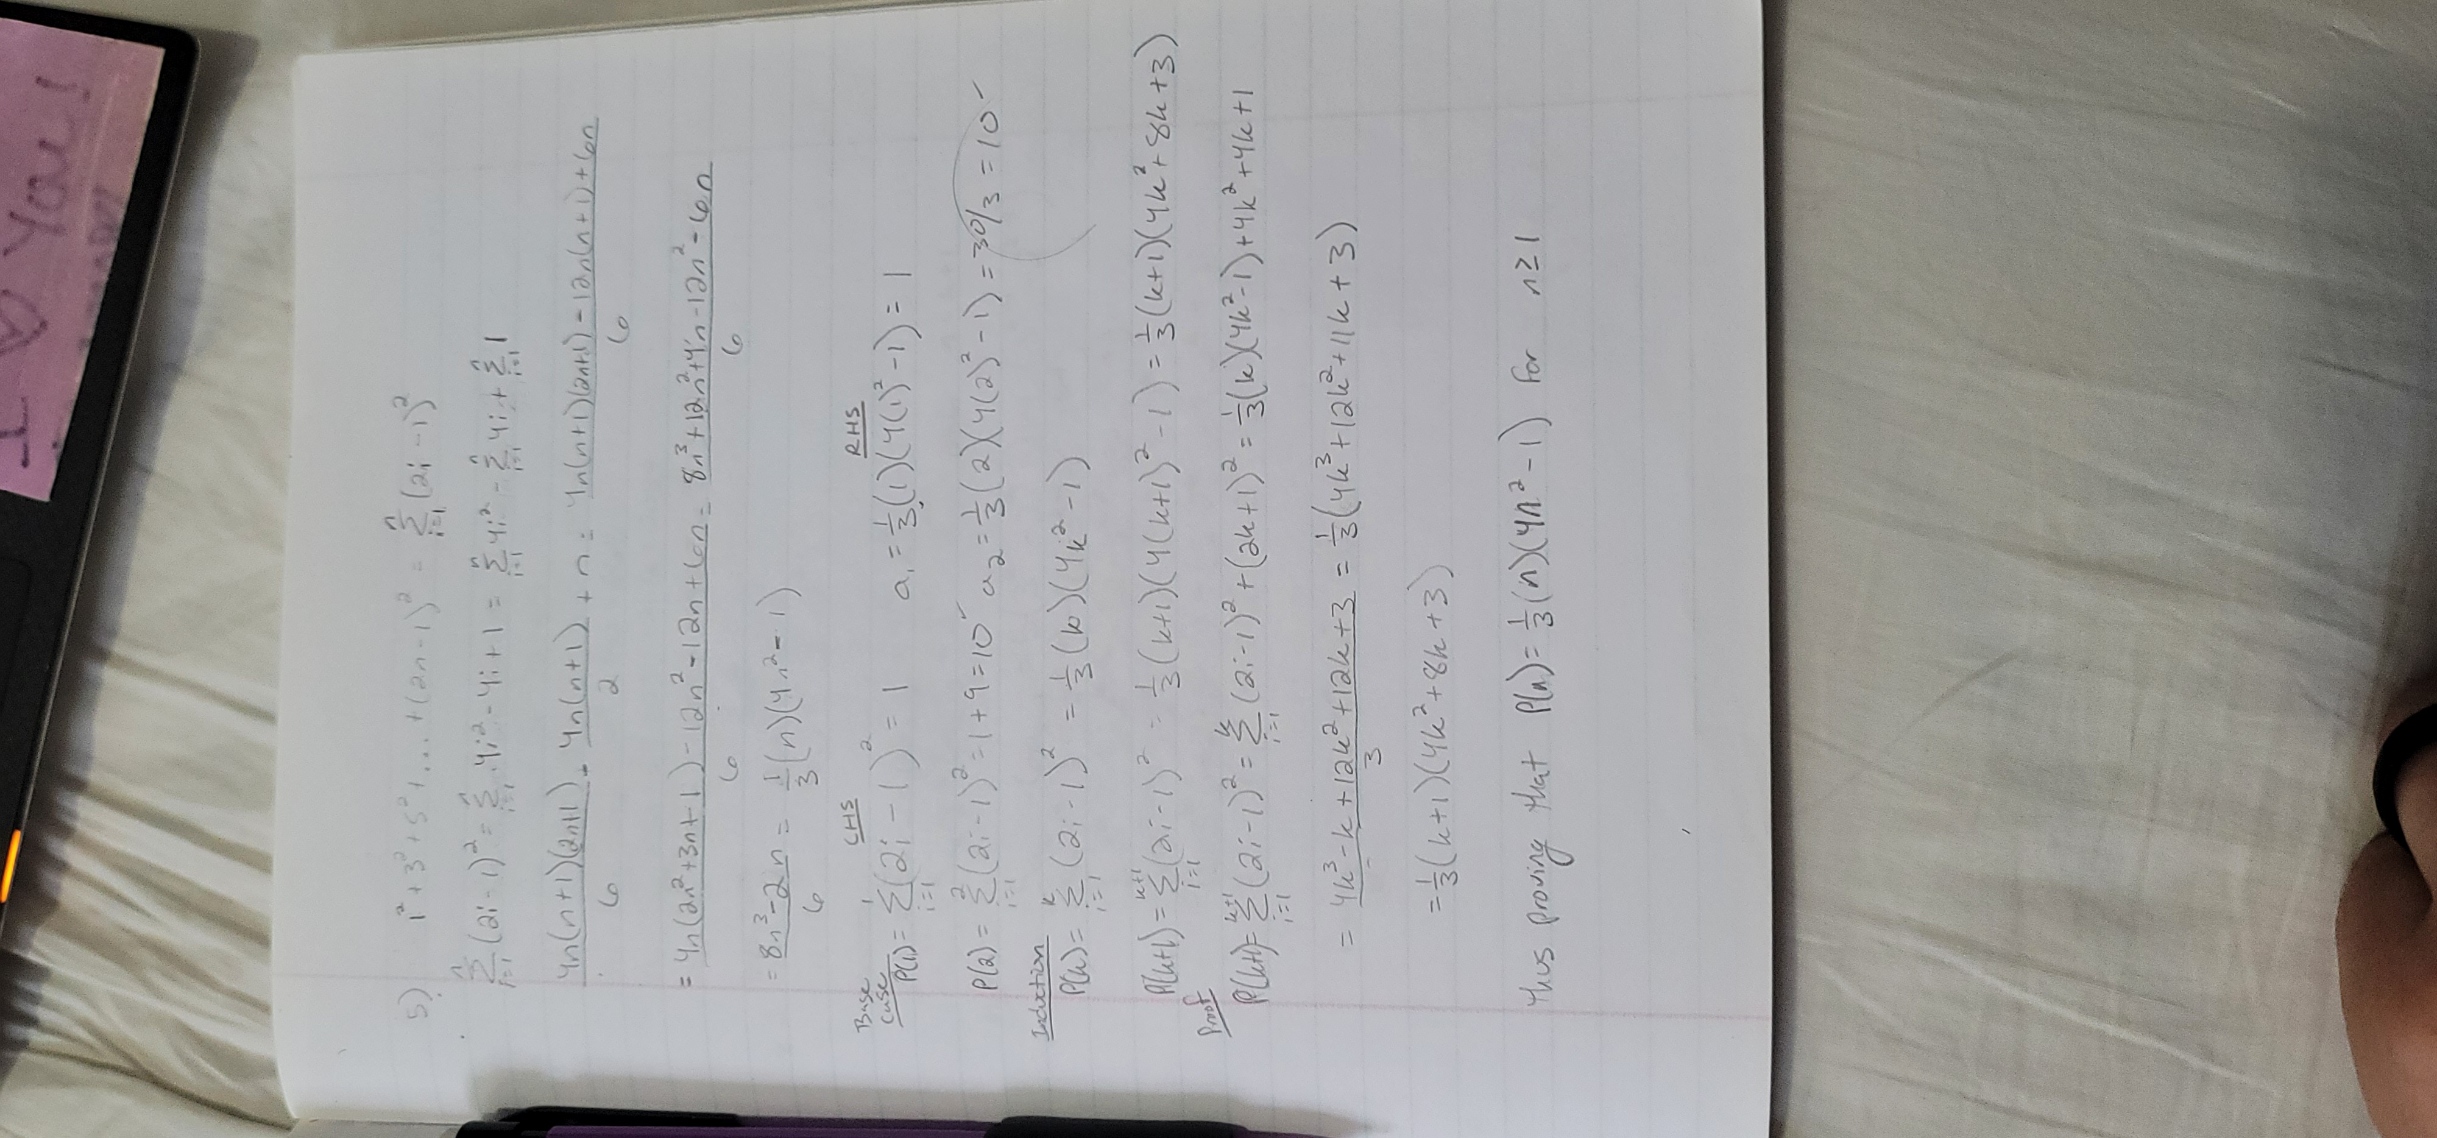 I ♡ You!
5) 1² + 3² + 5² + ... + (2n-1)² = Σ_{i=1}^{n} (2i-1)²
Σ_{i=1}^{n} (2i-1)² = Σ_{i=1}^{n} 4i² - 4i + 1 = Σ_{i=1}^{n} 4i² - Σ_{i=1}^{n} 4i + Σ_{i=1}^{n} 1
4n(n+1)(2n+1)/6 - 4n(n+1)/2 + n = (4n(n+1)(2n+1) - 12n(n+1) + 6n)/6
= (4n(2n²+3n+1) - 12n² - 12n + 6n)/6 = (8n³+12n²+4n-12n²-6n)/6
= (8n³-2n)/6 = 1/3 (n)(4n²-1)
LHS RHS
Base case P(1) = Σ_{i=1}^{1} (2i-1)² = 1 a₁ = 1/3 (1)(4(1)²-1) = 1
P(2) = Σ_{i=1}^{2} (2i-1)² = 1+9 = 10 ✓ a₂ = 1/3 (2)(4(2)²-1) = 30/3 = 10 ✓
Induction
P(k) = Σ_{i=1}^{k} (2i-1)² = 1/3 (k)(4k²-1)
P(k+1) = Σ_{i=1}^{k+1} (2i-1)² = 1/3 (k+1)(4(k+1)²-1) = 1/3 (k+1)(4k²+8k+3)
Proof
P(k+1) = Σ_{i=1}^{k+1} (2i-1)² = Σ_{i=1}^{k} (2i-1)² + (2k+1)² = 1/3 (k)(4k²-1) + 4k² + 4k + 1
= (4k³-k+12k²+12k+3)/3 = 1/3 (4k³+12k²+11k+3)
= 1/3 (k+1)(4k²+8k+3)
thus proving that P(n) = 1/3 (n)(4n²-1) for n≥1